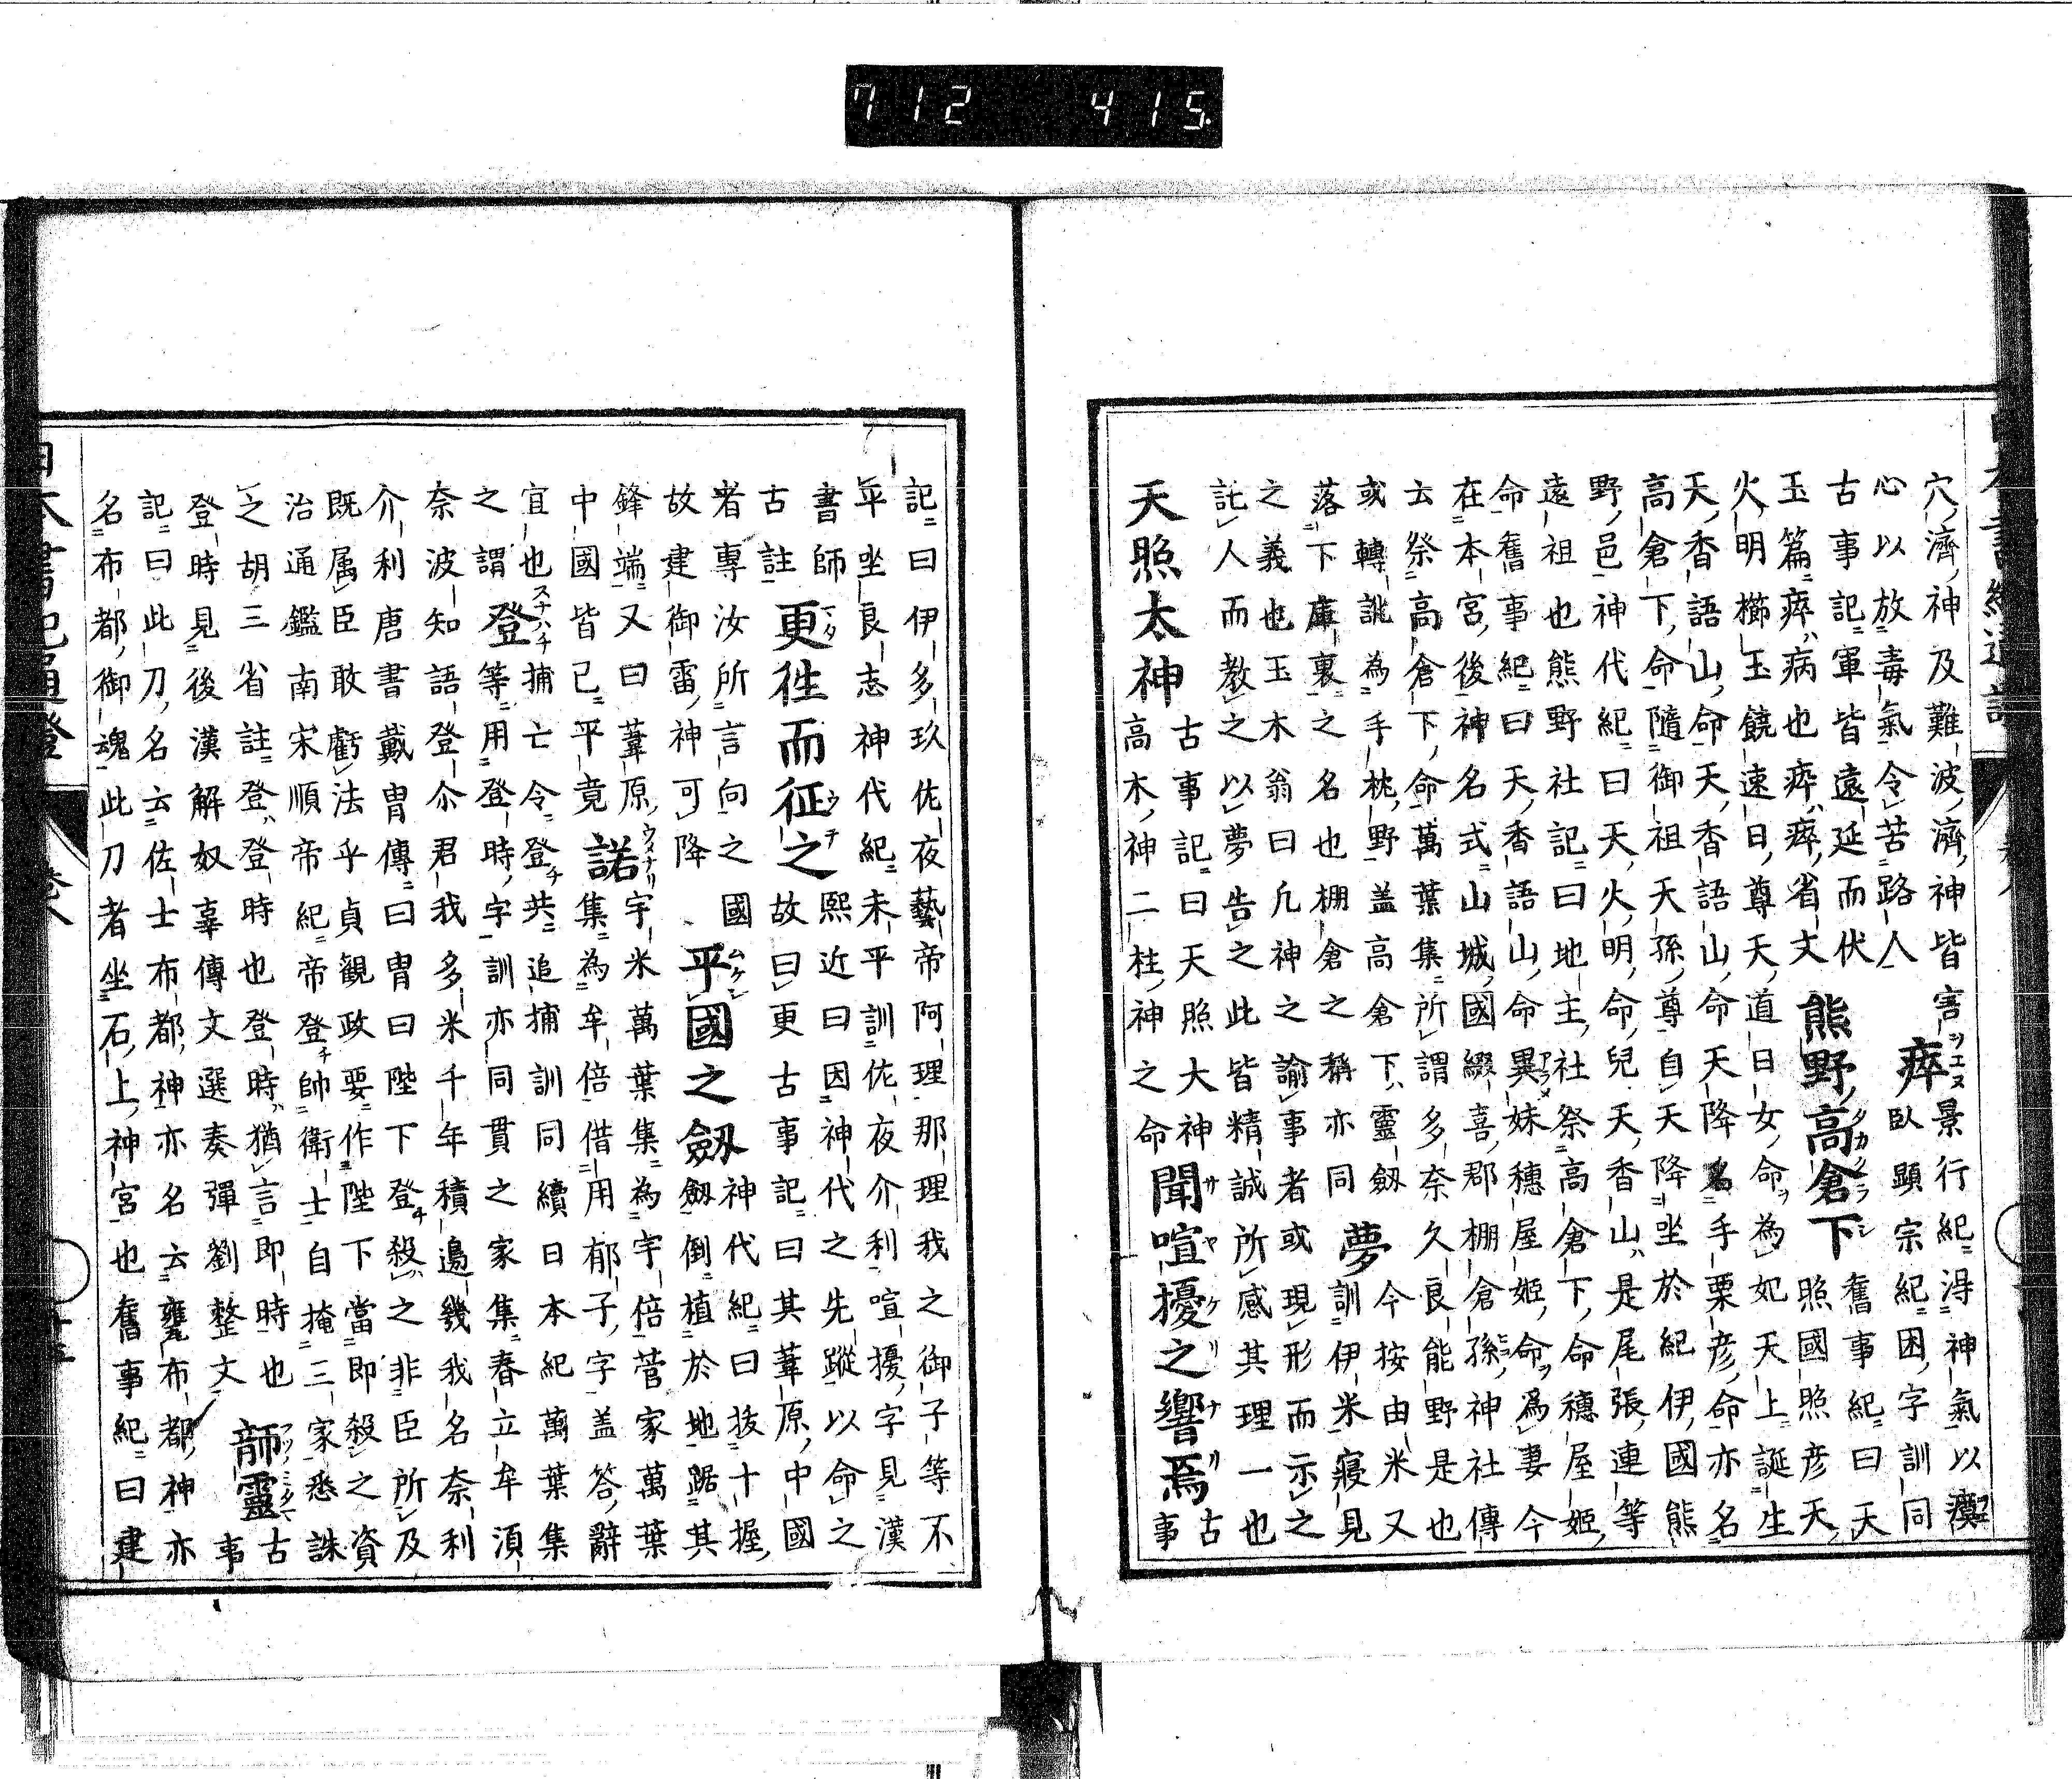 712 415
穴濟神及難波濟神皆害
心以放毒氣令苦路人
瘁
景行紀淂神氣以瘼
臥顯宗紀困字訓同
古事記軍皆遠延而伏
玉篇瘁病也瘁瘁省文
熊野高倉下
舊事紀曰天
照國照彦天
火明櫛玉饒速日尊天道日女命為妃天上誕生
天香語山命天香語山命天降名手栗彦命亦名
高倉下命隨御祖天孫尊自天降坐於紀伊國熊
野邑神代紀曰天火明命兒天香山是尾張連等
遠祖也熊野社記曰地主社祭高倉下命穗屋姫
命舊事紀曰天香語山命異妹穗屋姫命爲妻今
在本宮後神名式山城國綴喜郡棚倉孫神社傳
云祭高倉下命萬葉集所謂多奈久良能野是也
或轉訛為手枕野盖高倉下靈劔
落下庫裏之名也棚倉之稱亦同
夢
今按由米又
訓伊米寢見
之義也玉木翁曰凡神之諭事者或現形而示之
託人而教之以夢告之此皆精誠所感其理一也
天照太神
古事記曰天照大神
高木神二柱神之命
聞喧擾之響焉
古
事
記曰伊多玖佐夜藝帝阿理那理我之御子等不
平坐良志神代紀未平訓佐夜介利喧擾字見漢
書師
古註
更往而征之
熙近曰因神代之先蹤以命之
故曰更古事記曰其葦原中國
者專汝所言向之國
故建御雷神可降
平國之劔
神代紀曰拔十握
劔倒植於地踞其
鋒端又曰葦原
中國皆已平竟
諾
宇米萬葉集為宇倍菅家萬葉
集為牟倍借用郁子字盖答辭
宜也
之謂
登
捕亡令登共追捕訓同續日本紀萬葉集
等用登時字訓亦同貫之家集春立牟湏
奈波知語登尒君我多米千年積邉幾我名奈利
介利唐書戴冑傳曰冑曰陛下登殺之非臣所及
既属臣敢虧法乎貞観政要作陛下當即殺之資
治通鑑南宋順帝紀帝登帥衛士自掩三家悉誅
之胡三省註登登時也登時猶言即時也
登時見後漢解奴辜傳文選奏彈劉整文
韴靈
古
事
記曰此刀名云佐士布都神亦名云甕布都神亦
名布都御魂此刀者坐石上神宮也舊事紀曰建
日本書紀通證 卷八 十五